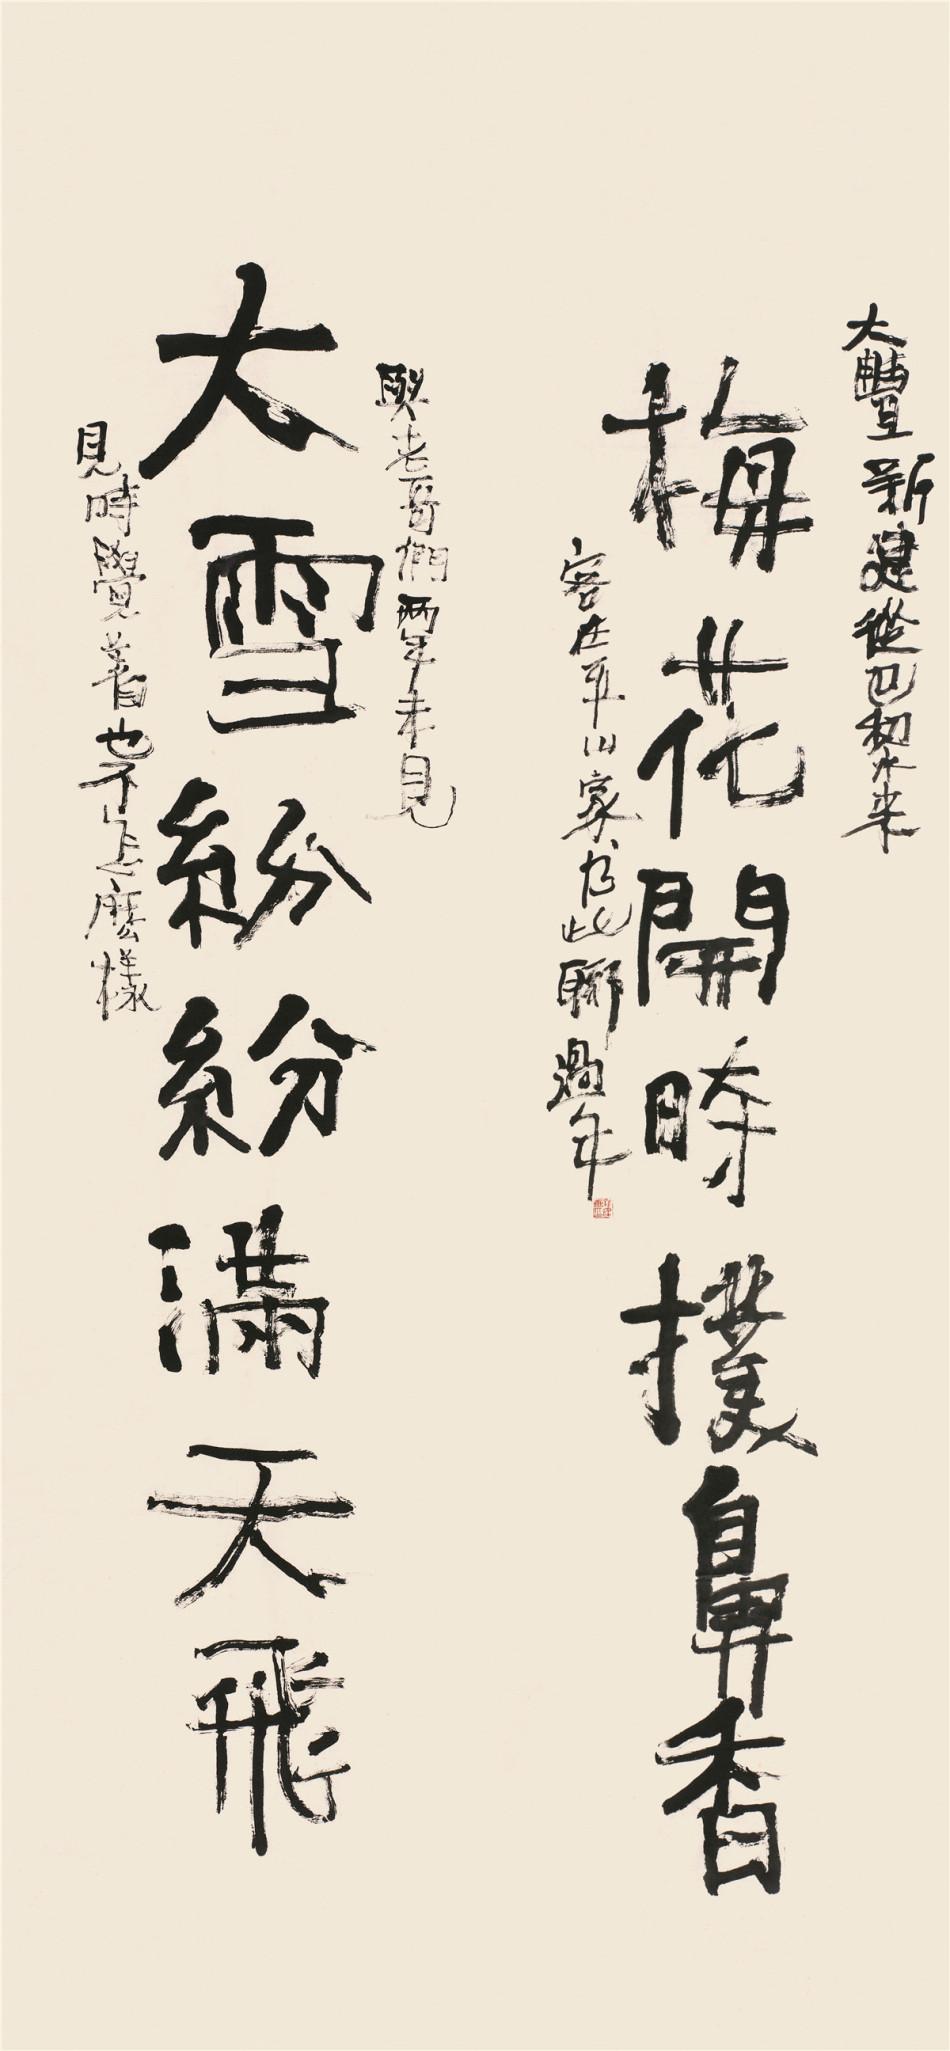 大豐新建從巴黎来
梅花開時撲鼻香
客在平山家书此聯過年
老哥們兩年未見
大雪紛紛滿天飛
見時覺着也不怎麼樣